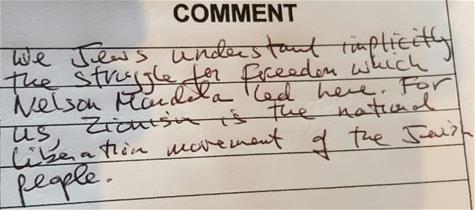 COMMENT
We Jews understand implicitly
the struggle for freedom which
Nelson Mandela led here. For
us, Zionism is the national
liberation movement of the Jewish
people.